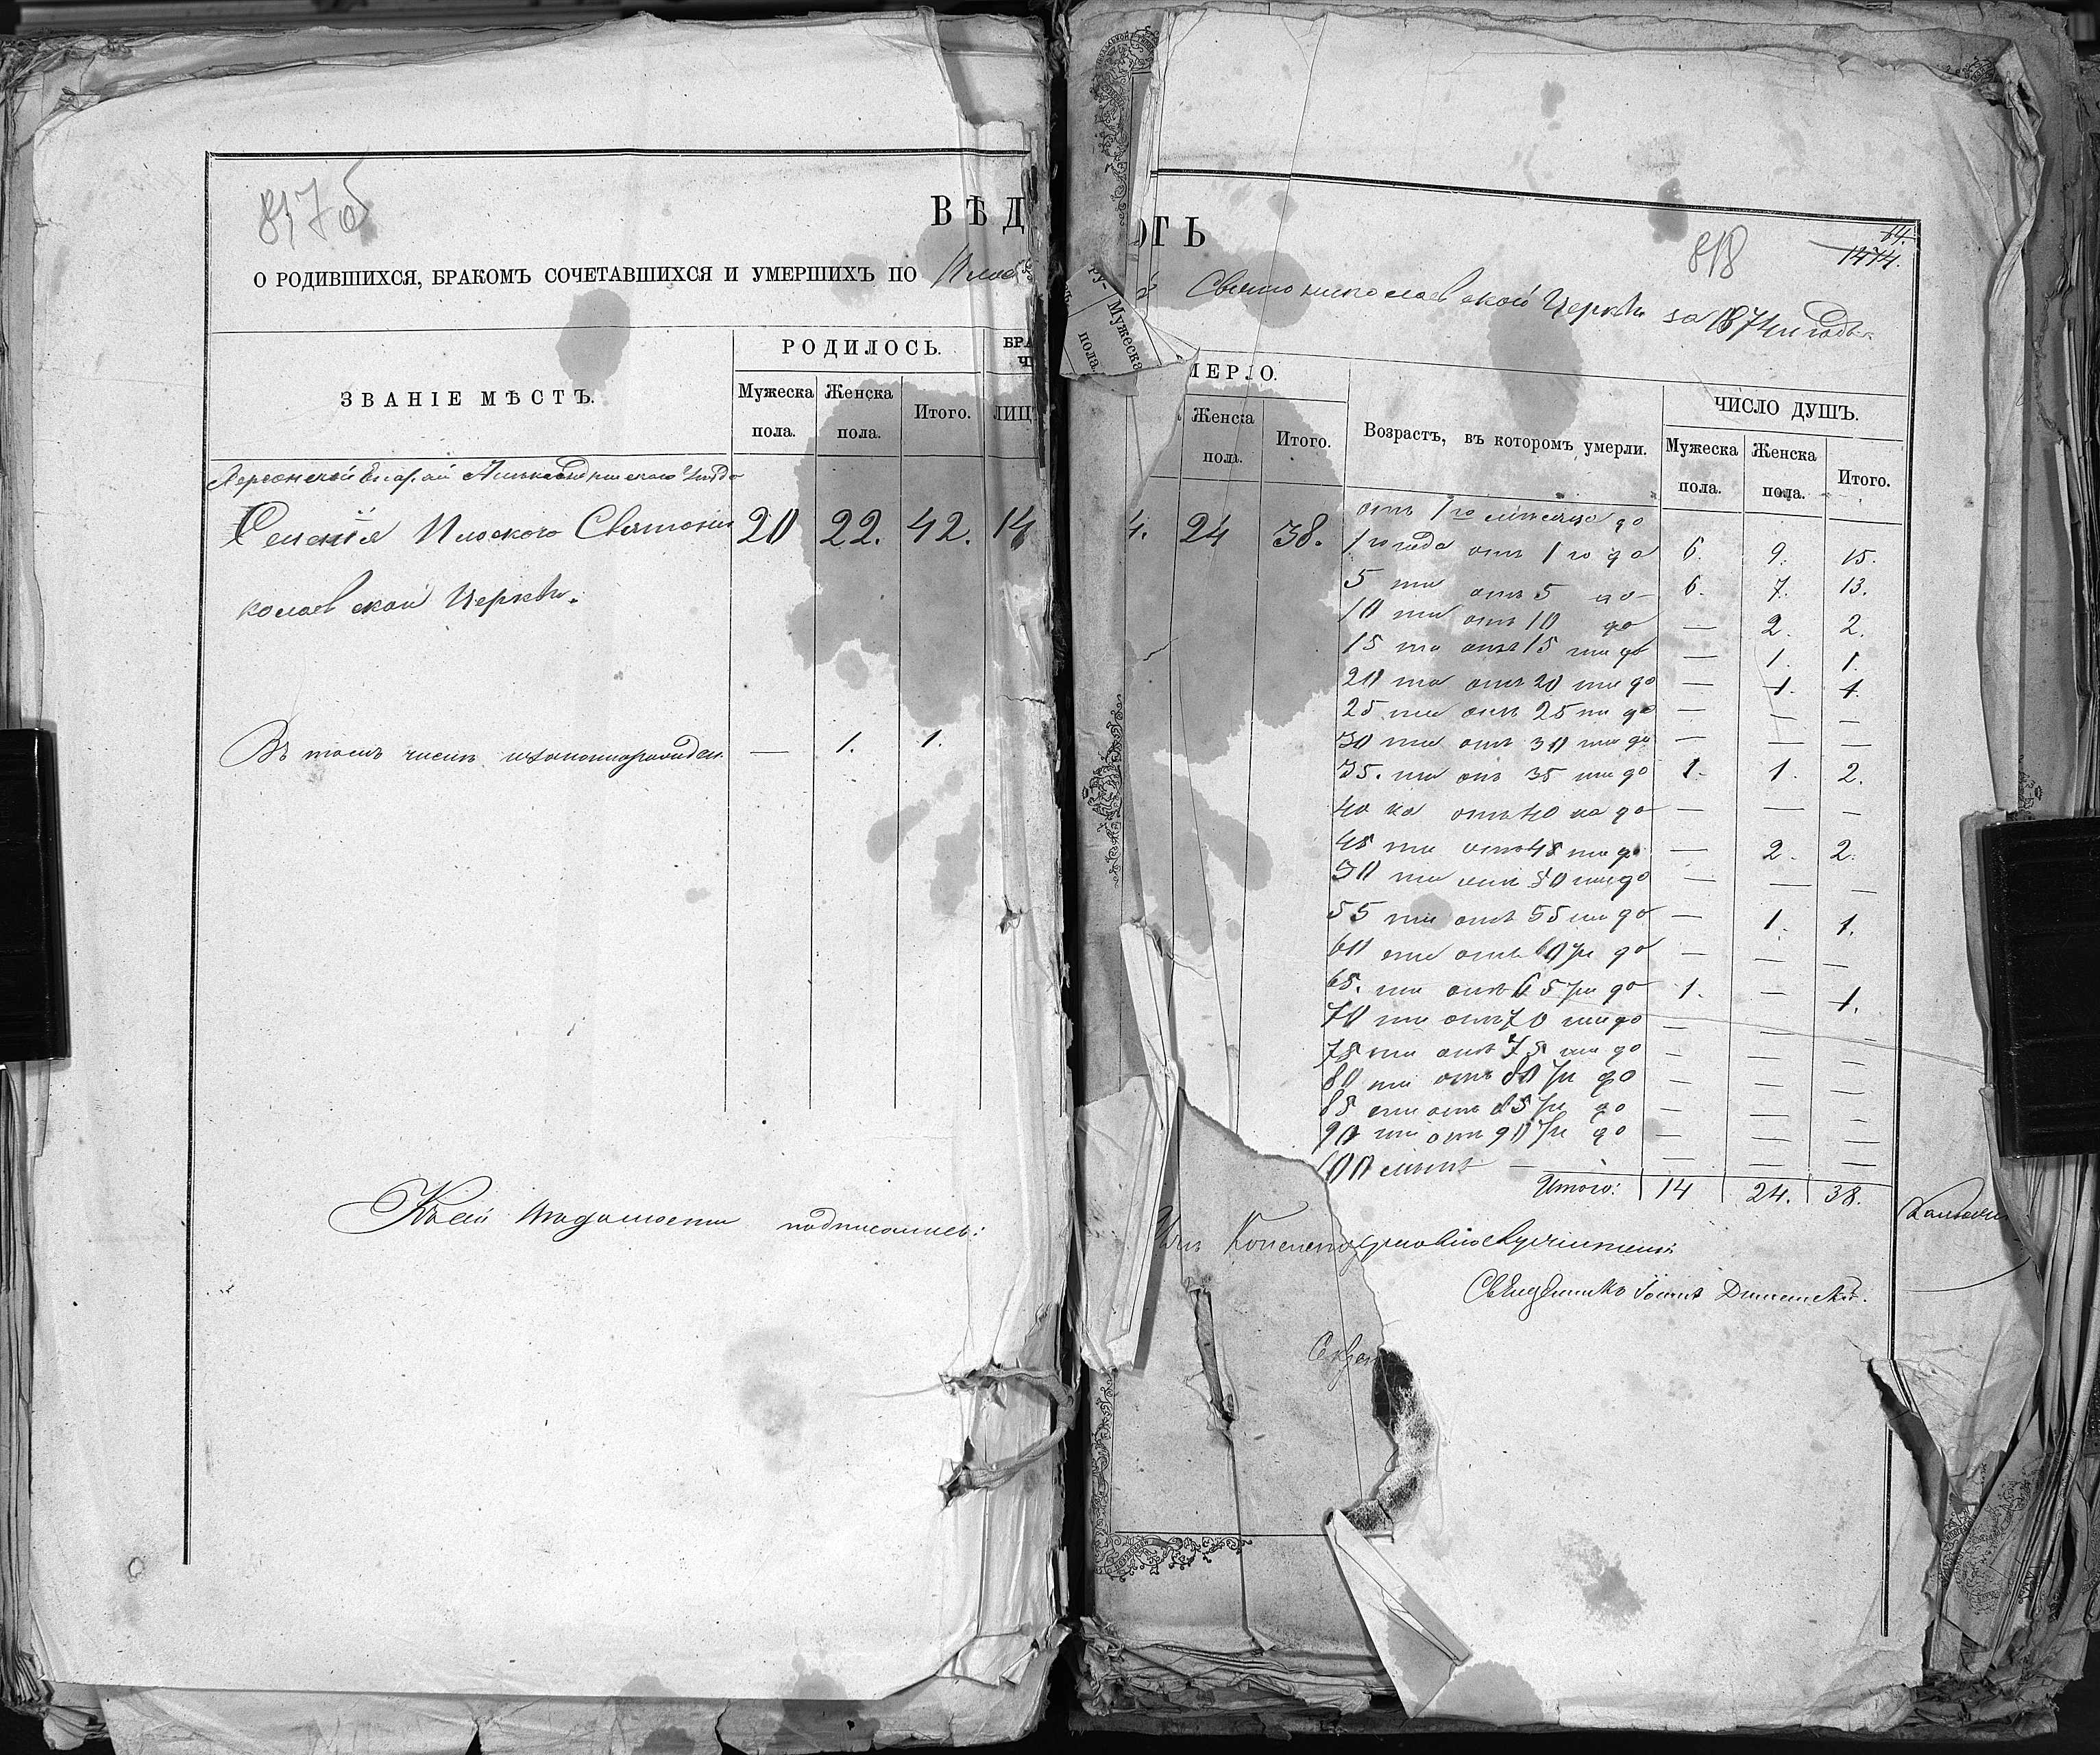 817 об
ВѢД
О РОДИВШИХСЯ, БРАКОМЪ СОЧЕТАВШИХСЯ И УМЕРШИХЪ ПО
ЗВАНІЕ МѢСТЪ.
РОДИЛОСЬ.
БРА
Мужеска пола.
Женска пола.
Итого.
ЛИЦ
Херсонской Епархіи Александрійскаго Уѣзда
Селенія Плоскаго Святони
20 22. 42. 14
колаевской Церкви.
Въ томъ числѣ незаконнорожден. — 1. 1.
Къ сей подписались:
ОТЬ
818
64.
1474.
Святониколаевской Церкви за 1874й годъ.
ру-
Мужеска
пола.
МЕРЛО.
Женска пола.
Итого.
Возрастъ, въ которомъ умерли.
ЧИСЛО ДУШЪ.
Мужеска пола.
Женска пола.
Итого.
4. 24 38.
отъ 1го мѣсяца до
1го года отъ 1го до 6. 9. 15.
5 ти отъ 5 до 6. 7. 13.
10 ти отъ 10 до — 2. 2.
15 ти отъ 15 ти до — 1. 1.
20 ти отъ 20 ти до — 1. 1.
25 ти отъ 25 ти до — — —
30 ти отъ 30 ти до — — —
35. ти отъ 35 ти до 1. 1. 2.
40 ка отъ 40 ка до — — —
45 ти отъ 45 ти до — 2. 2.
50 ти отъ 50 ти до — — —
55 ти отъ 55 ти до — 1. 1.
60 ти отъ 60 ти до — — —
65. ти отъ 65 ти до 1. — 1.
70 ти отъ 70 ти до — — —
75 ти отъ 75 ти до — — —
80 ти отъ 80 ти до — — —
85 ти отъ 85 ти до — — —
90 ти отъ 90 ти до — — —
100 лѣтъ — — — —
Итого: 14 24. 38.
Священникъ Іоаннъ
Секре